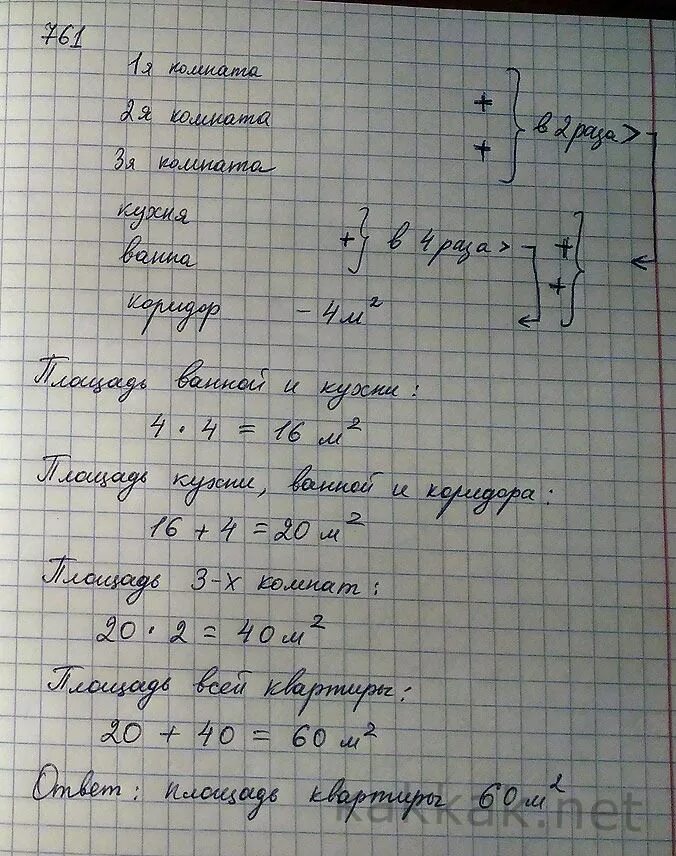 761
1я комната
2я комната + } в 2 раза >
3я комната +
кухня
ванна + } в 4 раза > + }
коридор - 4 м² +
Площадь ванной и кухни:
4 · 4 = 16 м²
Площадь кухни, ванной и коридора:
16 + 4 = 20 м²
Площадь 3-х комнат:
20 · 2 = 40 м²
Площадь всей квартиры:
20 + 40 = 60 м²
Ответ: площадь квартиры 60 м²
kakkak.net